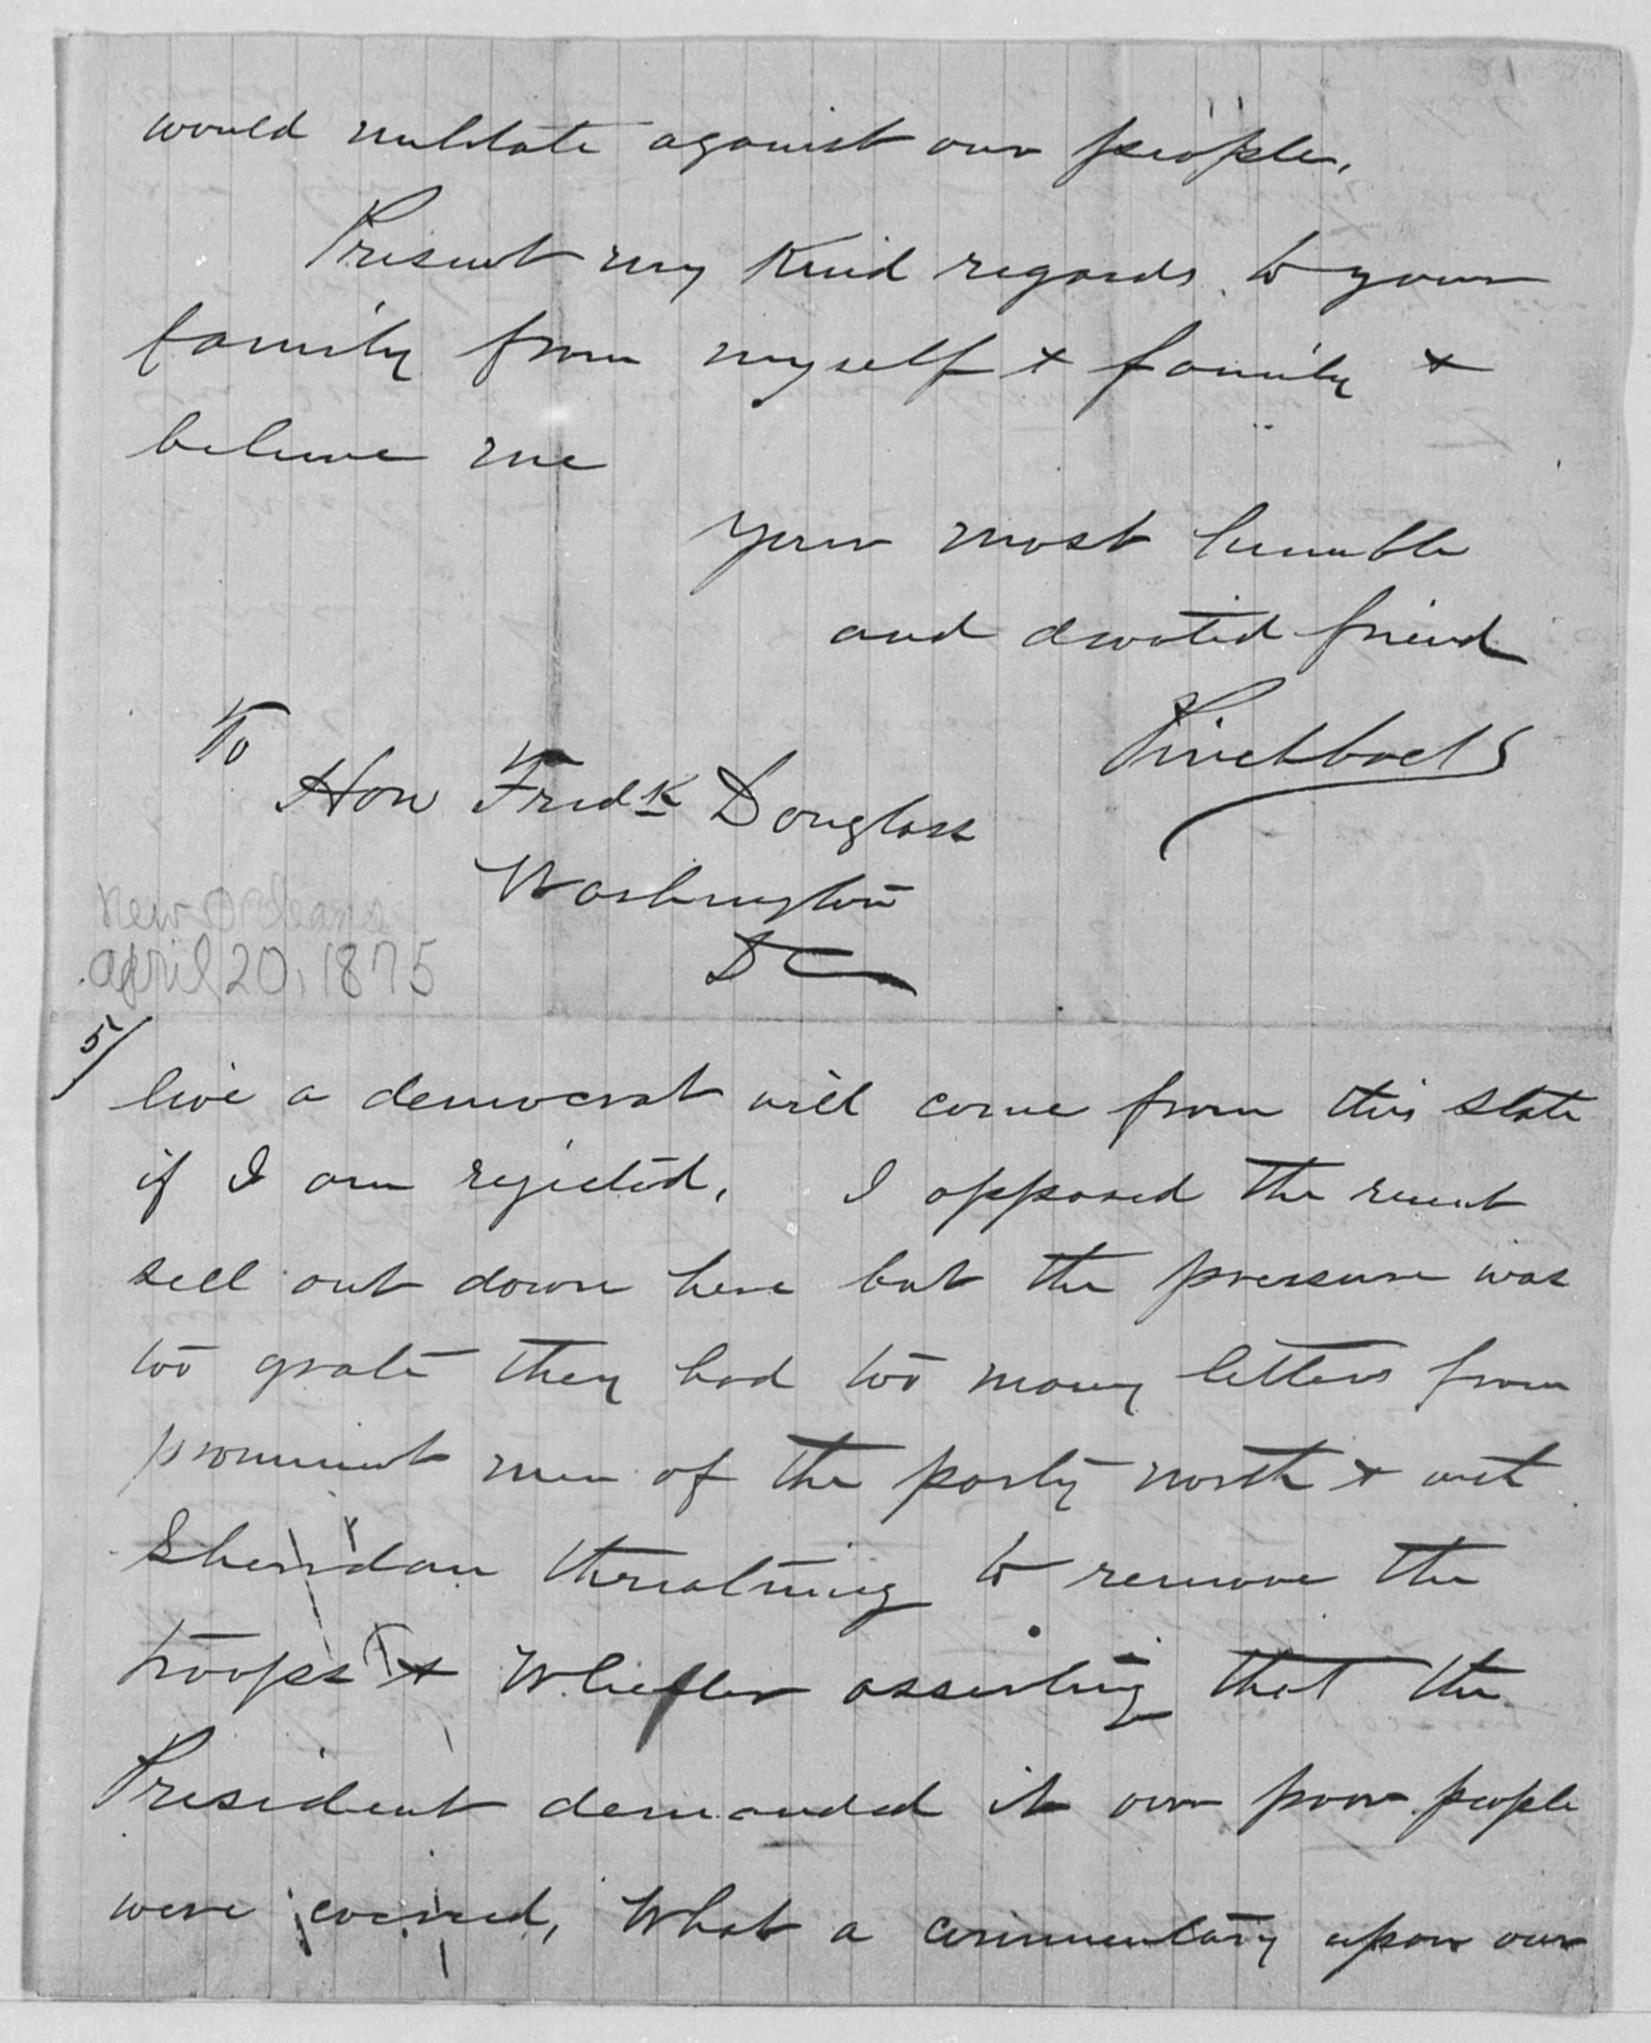 would militate against our people.
Present my Kind regards to your
family from myself & family &
believe me
your most humble
and devoted friend
Pinchback
To
Hon Fredk Douglass
Washington
DC
New Orleans
april 20, 1875
5/
live a democrat will come from this state
if I am rejected. I opposed the recent
sell out down here but the pressure was
too grate they had too many letters from
prominent men of the party north & with
Sheridan threatning to remove the
troops & Wheeler asserting that the
President demanded it our poor people
were coerced, What a commentary upon our